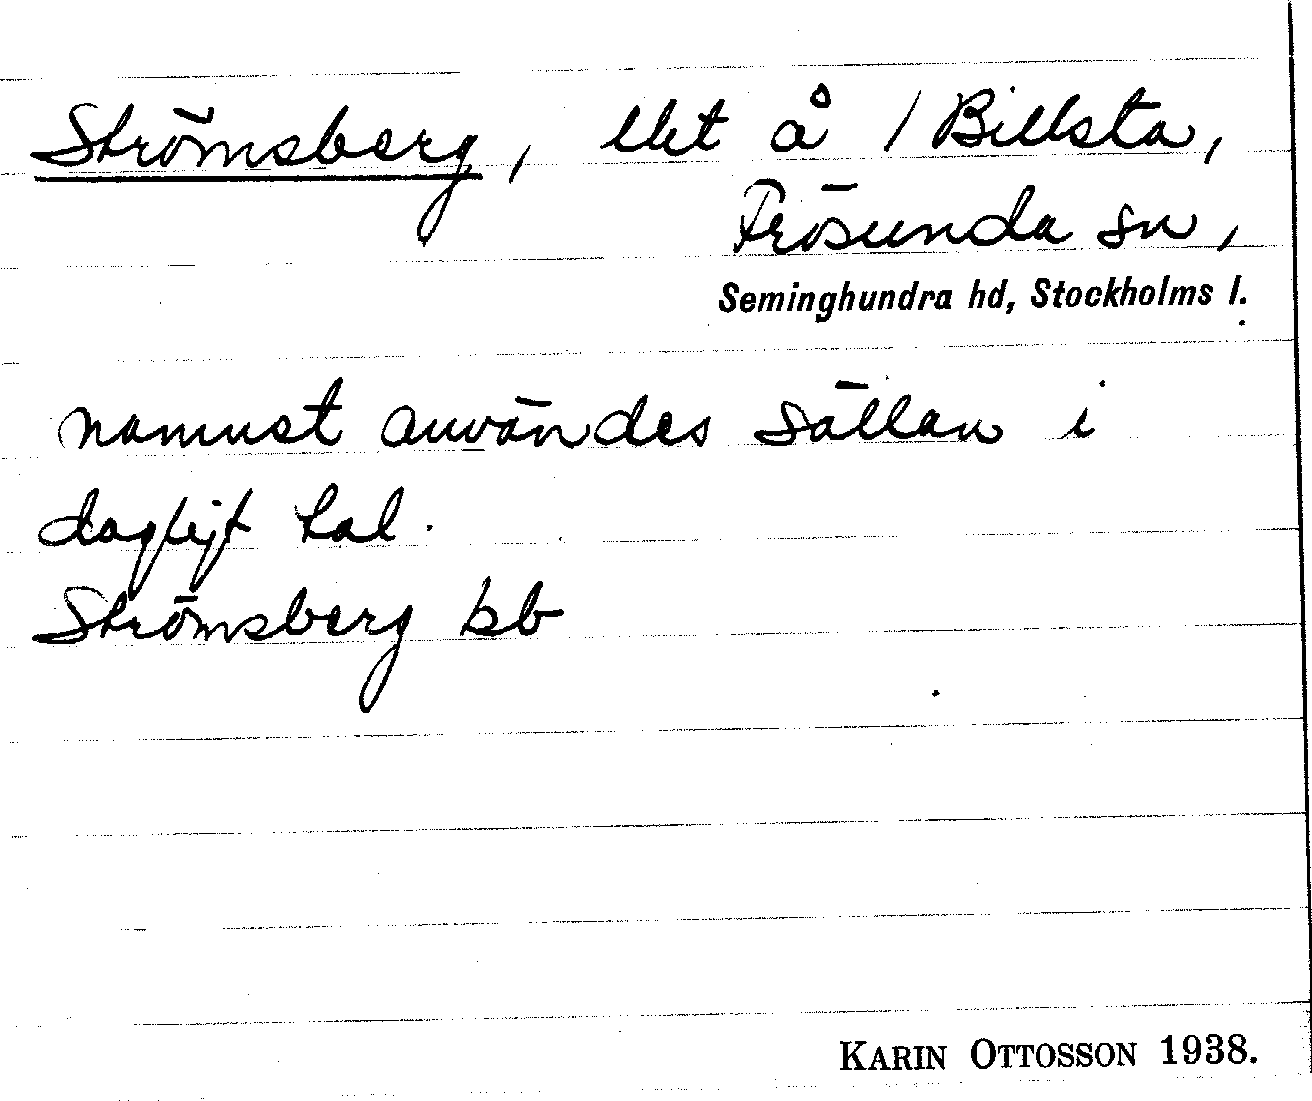 Strömsberg, lht å / Billsta,
Frösunda sn,
Seminghundra hd, Stockholms l.
namnet användes sällan i
dagligt tal.
Strömsberg kb
KARIN OTTOSSON 1938.